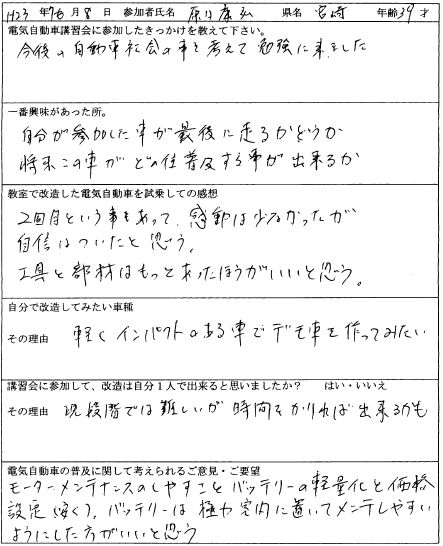 H23 年 10 月 8 日 参加者氏名 原口 康弘 県名 宮崎 年齢 39 才
電気自動車講習会に参加したきっかけを教えて下さい。
今後の自動車社会の事を考えて勉強に来ました
一番興味があった所。
自分が参加した車が最後に走るかどうか
将来この車がどの位普及する事が出来るか
教室で改造した電気自動車を試乗しての感想
2回目という事もあって、感動は少なかったが
自信はついたと思う。
工具と部材はもっとあったほうがいいと思う。
自分で改造してみたい車種
その理由 軽くインパクトのある車でデモ車を作ってみたい
講習会に参加して、改造は自分1人で出来ると思いましたか? はい・いいえ
その理由 現段階では難しいが時間をかければ出来るかも
電気自動車の普及に関して考えられるご意見・ご要望
モーターメンテナンスのしやすさとバッテリーの軽量化と価格
設定(安く)、バッテリーは極力室内に置いてメンテしやすい
ようにした方がいいと思う